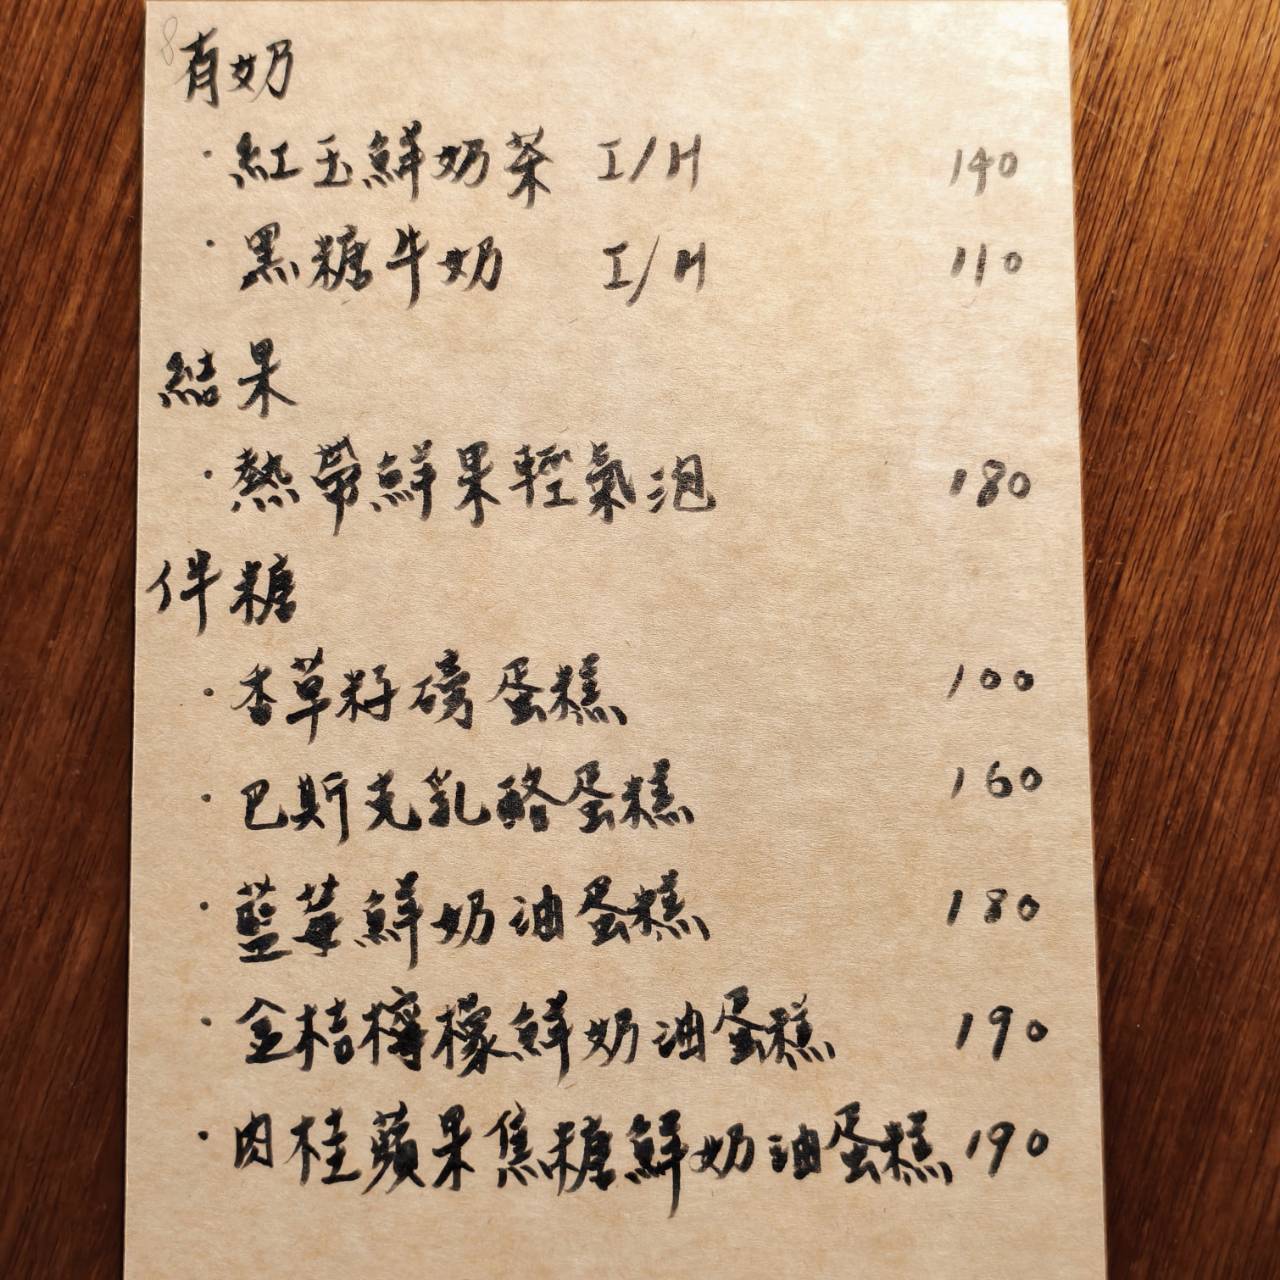 有奶
・紅玉鮮奶茶 I/H 140
・黑糖牛奶 I/H 110
結果
・熱帶鮮果輕氣泡 180
伴糖
・香草籽磅蛋糕 100
・巴斯克乳酪蛋糕 160
・藍莓鮮奶油蛋糕 180
・金桔檸檬鮮奶油蛋糕 190
・肉桂蘋果焦糖鮮奶油蛋糕 190